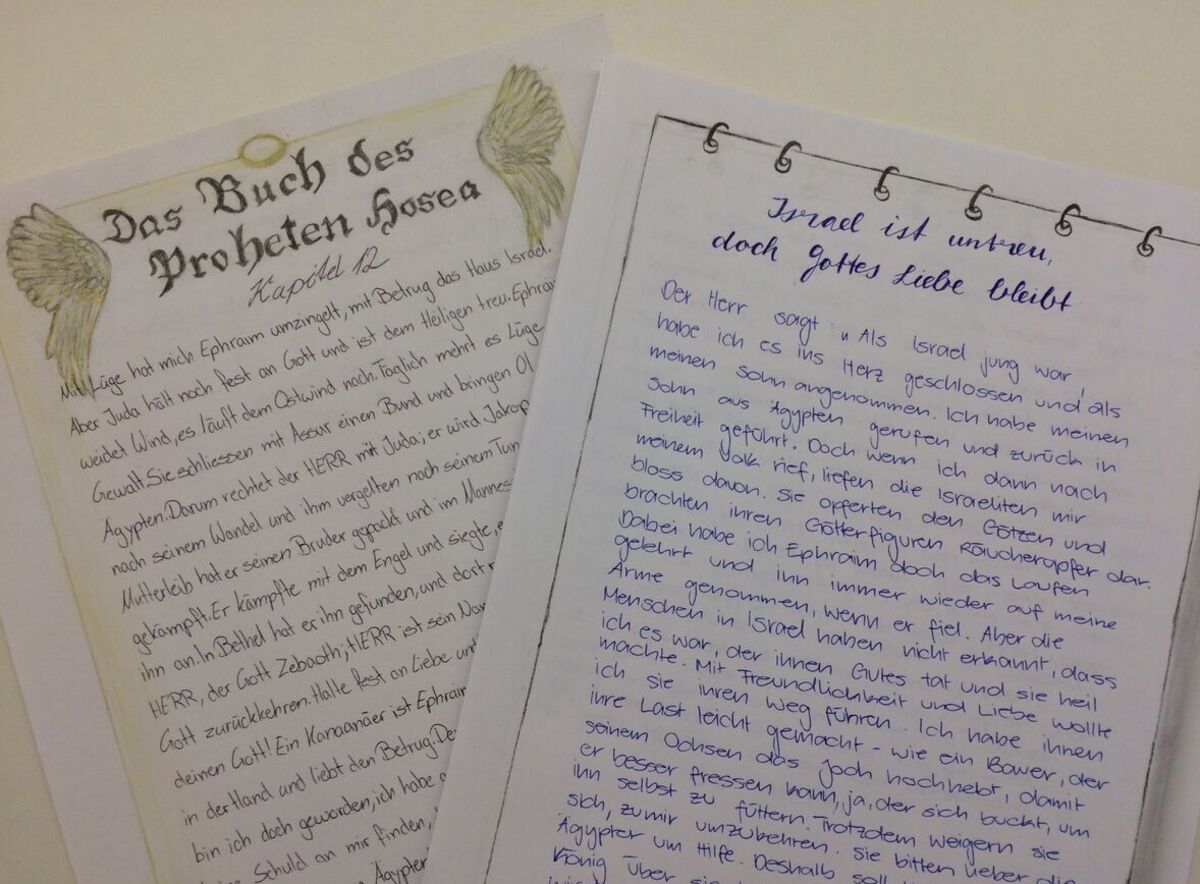 Das Buch des
Proheten Hosea
Kapitel 12
Mit Lüge hat mich Ephraim umzingelt, mit Betrug das Haus Israel.
Aber Juda hält noch fest an Gott und ist dem Heiligen treu. Ephraim
weidet Wind, es läuft dem Ostwind nach. Täglich mehrt es Lüge
Gewalt. Sie schliessen mit Assur einen Bund und bringen Öl
Ägypten. Darum rechtet der HERR mit Juda; er wird Jakop
nach seinem Wandel und ihm vergelten nach seinem Tun
Mutterleib hat er seinen Bruder gepackt und im Mannes
gekämpft. Er kämpfte mit dem Engel und siegte, e
ihn an. In Bethel hat er ihn gefunden, und dort r
HERR, der Gott Zebaoth; HERR ist sein Nam
Gott zurückkehren. Halte fest an Liebe un
deinen Gott! Ein Kanaanäer ist Ephraim
in der Hand und liebt den Betrug. De
bin ich doch geworden, ich habe
Schuld an mir finden,
Ägypten
Israel ist untreu,
doch Gottes Liebe bleibt
Der Herr sagt: „Als Israel jung war,
habe ich es ins Herz geschlossen und als
meinen Sohn angenommen. Ich habe meinen
Sohn aus Ägypten gerufen und zurück in
Freiheit geführt. Doch wenn ich dann nach
meinem Volk rief, liefen die Israeliten mir
bloss davon. Sie opferten den Götzen und
brachten ihren Götterfiguren Räucheropfer dar.
Dabei habe ich Ephraim doch das Laufen
gelehrt und ihn immer wieder auf meine
Arme genommen, wenn er fiel. Aber die
Menschen in Israel haben nicht erkannt, dass
ich es war, der ihnen Gutes tat und sie heil
machte. Mit Freundlichkeit und Liebe wollte
ich sie ihren Weg führen. Ich habe ihnen
ihre Last leicht gemacht - wie ein Bauer, der
seinem Ochsen das Joch hochhebt, damit
er besser fressen kann, ja, der sich bückt, um
ihn selbst zu füttern. Trotzdem weigern sie
sich, zu mir umzukehren. Sie bitten lieber die
Ägypter um Hilfe. Deshalb soll
König über sie